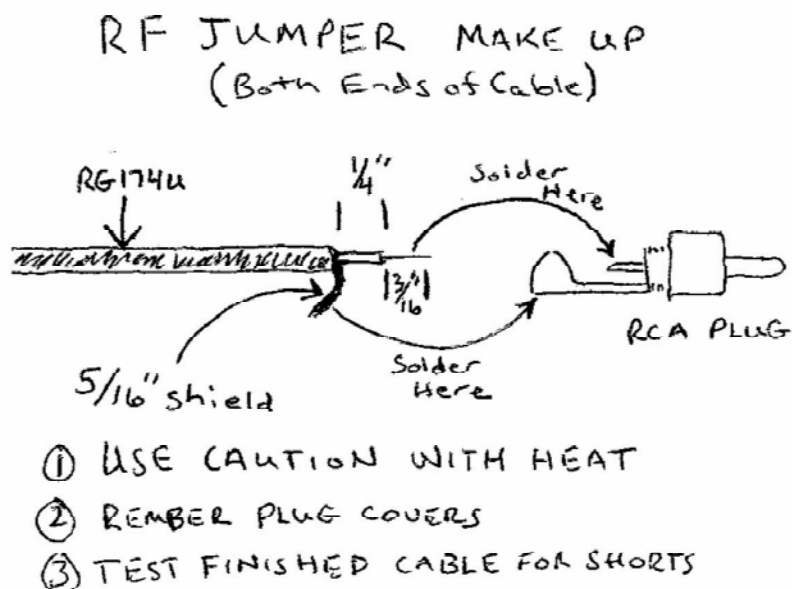 RF JUMPER MAKE UP
(Both Ends of Cable)
RG174U
1/4"
Solder
Here
3/16"
5/16" shield
Solder
Here
RCA PLUG
① USE CAUTION WITH HEAT
② REMBER PLUG COVERS
③ TEST FINISHED CABLE FOR SHORTS